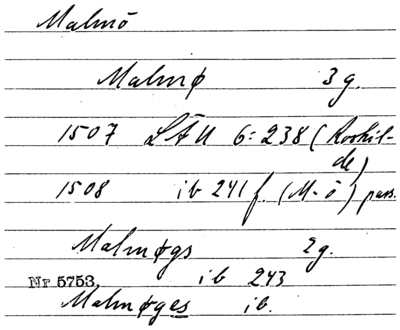 Malmö
Malmø 3 g.
1507 LÄU 6:238 (Roskil-
de)
1508 ib 241 f. (M-ö) pass.
Malmøgs 2 g.
Nr 5753. ib 243
Malmøges ib.